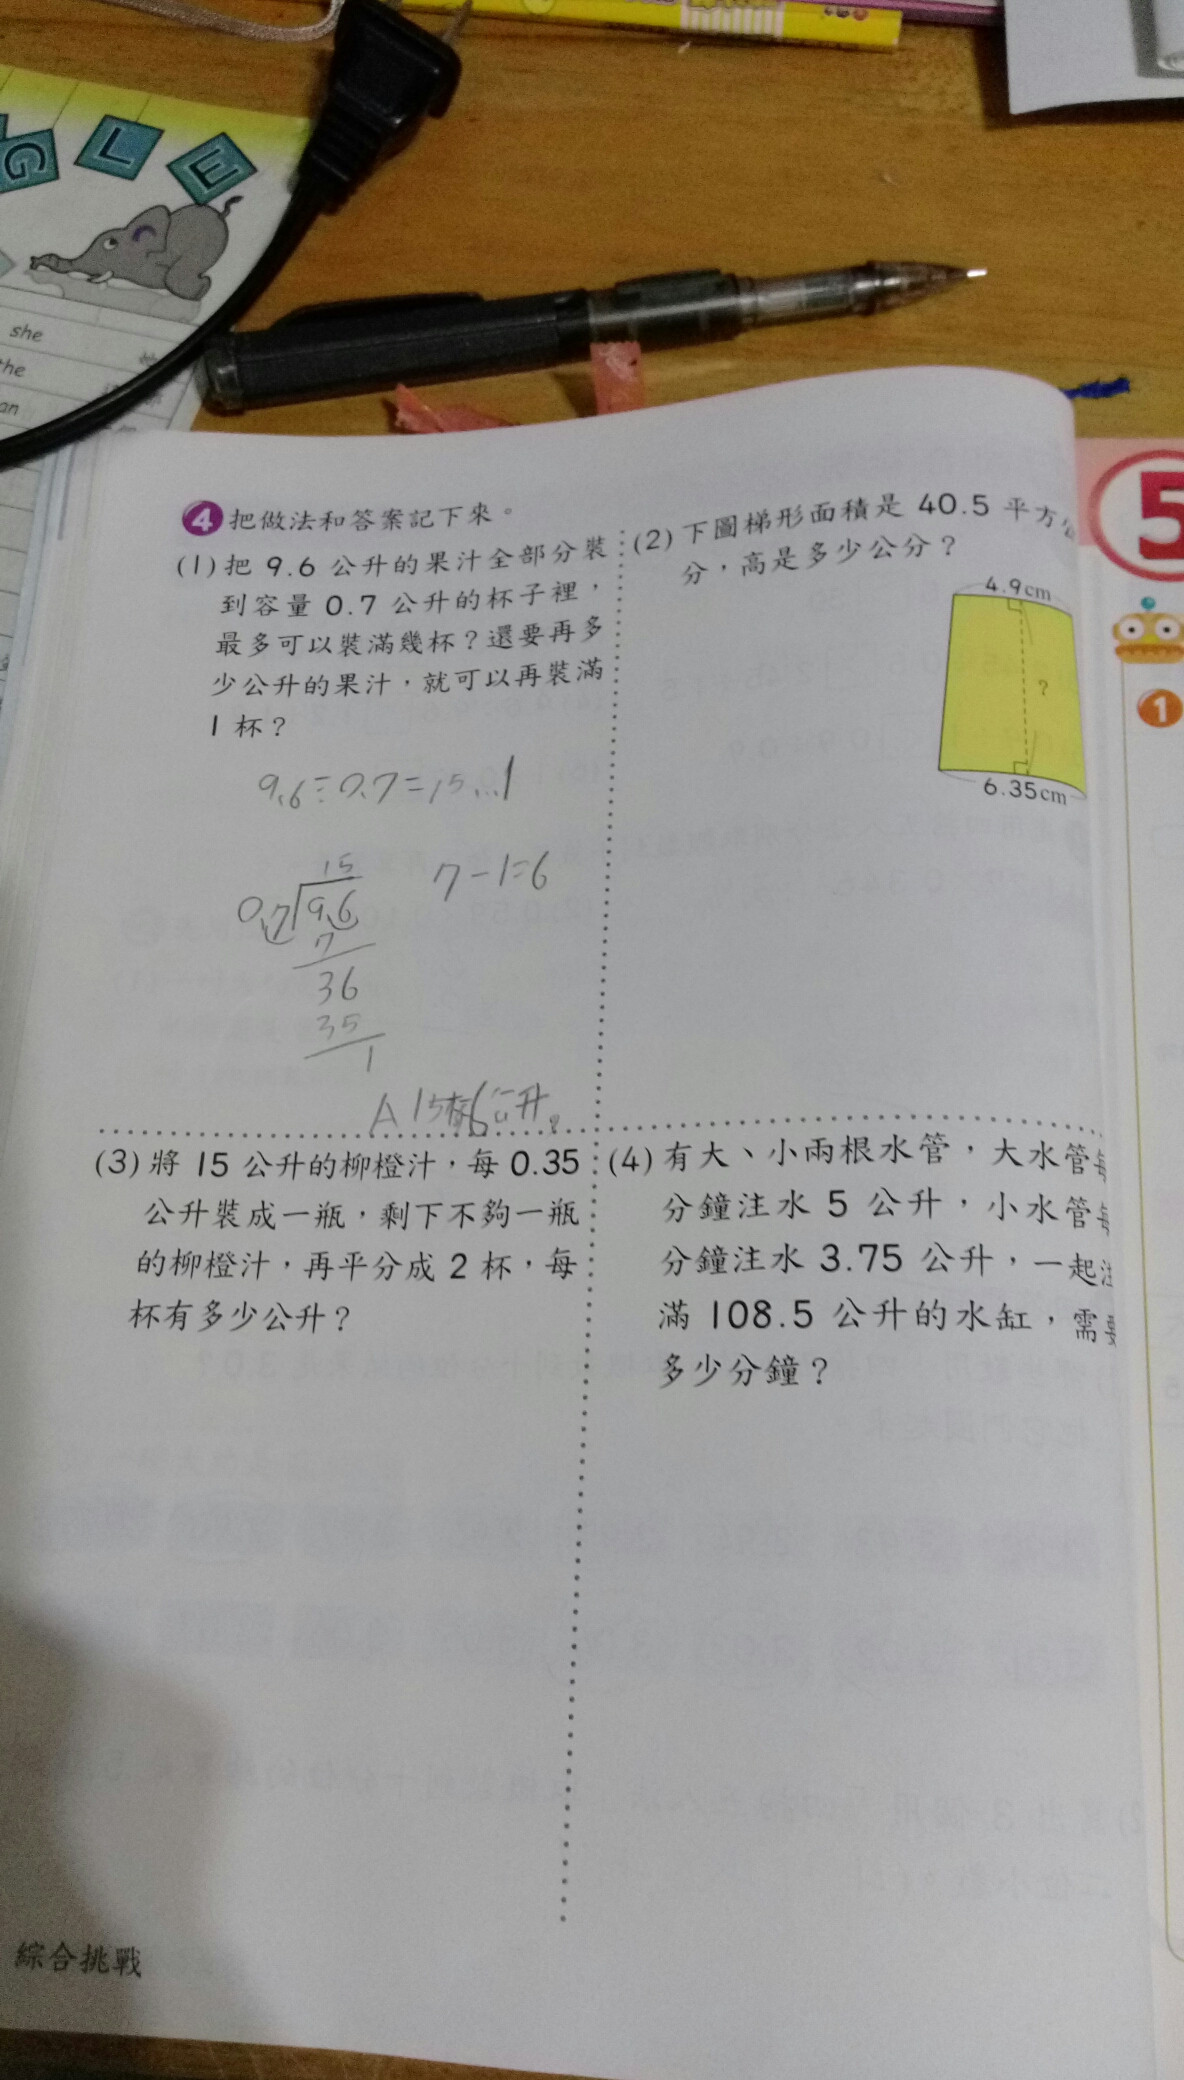 G L E
she
the
an
5
1
4 把做法和答案記下來。
(1) 把 9.6 公升的果汁全部分裝
到容量 0.7 公升的杯子裡，
最多可以裝滿幾杯？還要再多
少公升的果汁，就可以再裝滿
1 杯？
9.6÷0.7=15...1
15
0.7 9.6
7
36
35
1
7-1=6
A 15杯6公升。
(2) 下圖梯形面積是 40.5 平方公
分，高是多少公分？
4.9cm
?
6.35cm
(3) 將 15 公升的柳橙汁，每 0.35
公升裝成一瓶，剩下不夠一瓶
的柳橙汁，再平分成 2 杯，每
杯有多少公升？
(4) 有大、小兩根水管，大水管每
分鐘注水 5 公升，小水管每
分鐘注水 3.75 公升，一起注
滿 108.5 公升的水缸，需要
多少分鐘？
綜合挑戰